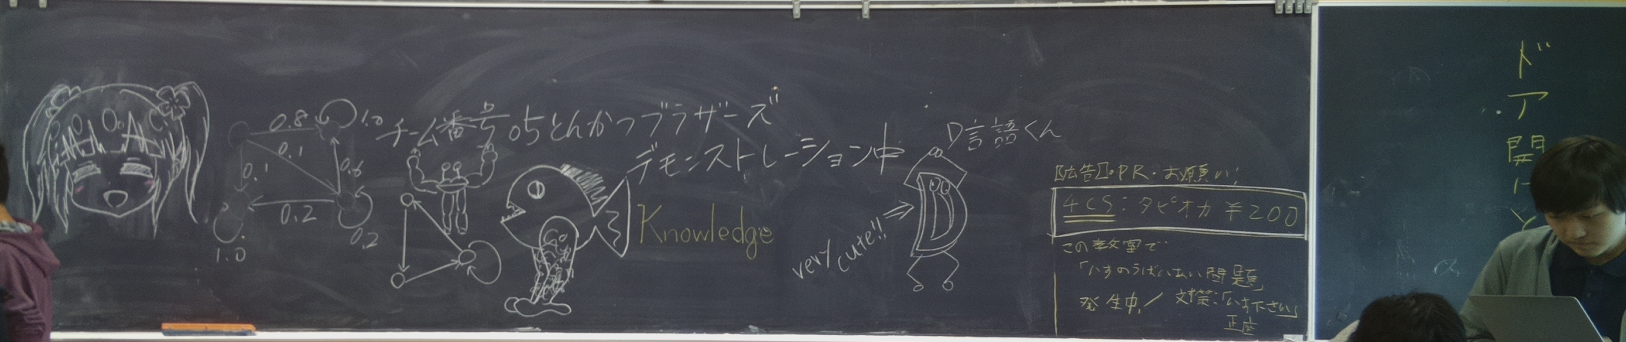 0.8
1.0
0.1
0.1
0.6
0.2
0.2
1.0
チーム番号05とんかつブラザーズ
デモンストレーション中
Knowledge
D言語くん
very cute!!
【広告】・PR・お願い!
4CS:タピオカ¥200
この教室で
「いすのうばいあい問題」
発生中! 対策:「いす下さい」
正座
ドア開けと